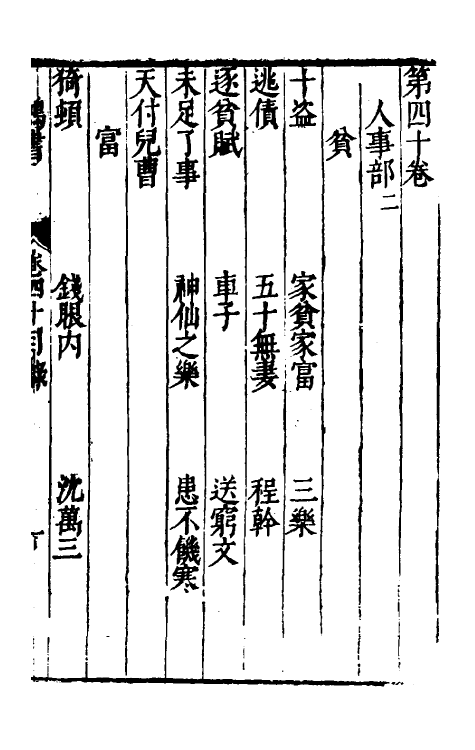 第四十卷
人事部二
貧
十盗 家貧家富 三樂
逃債 五十無妻 程幹
逐貧賦 車子 送窮文
未足了事 神仙之樂 患不饑寒
天付兒曹
富
猗頓 錢眼內 沈萬三
卷四十目錄